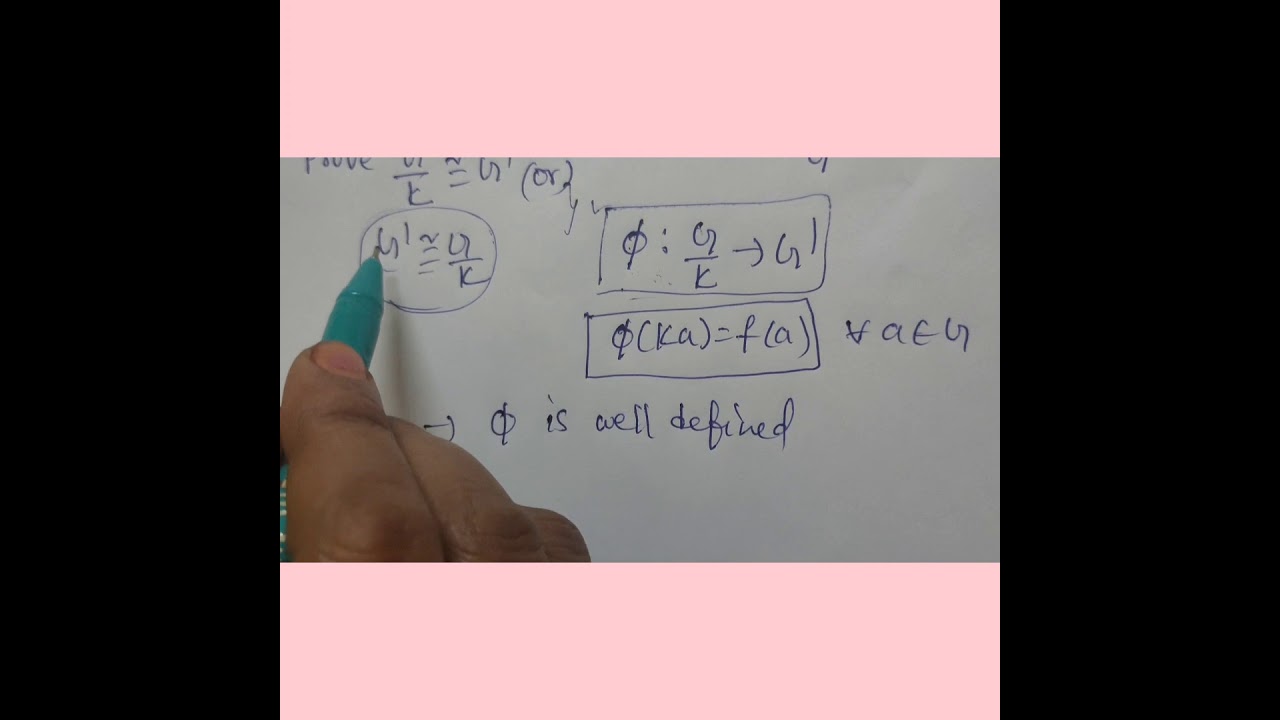 Prove G/K ≅ G' (or)
G' ≅ G/K
φ : G/K → G'
φ(Ka) = f(a) ∀ a ∈ G
→ φ is well defined